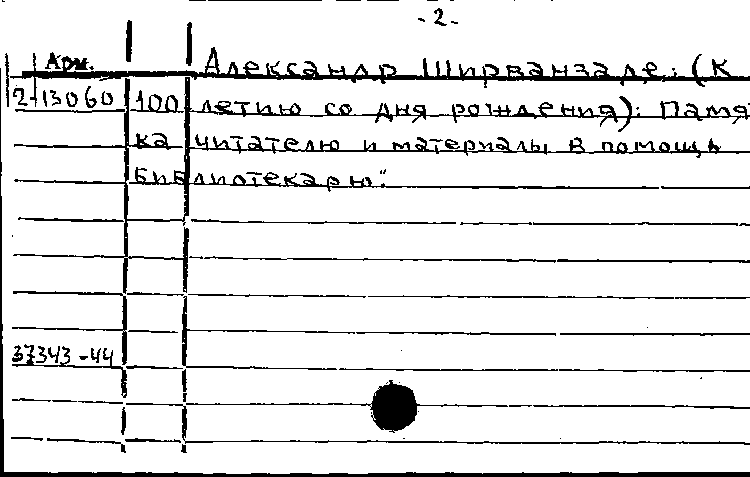 - 2 -
Арм. Александр Ширванзаде: (К
2-13060 100 летию со дня рождения): Памят
ка читателю и материалы в помощь
библиотекарю".
37343-44